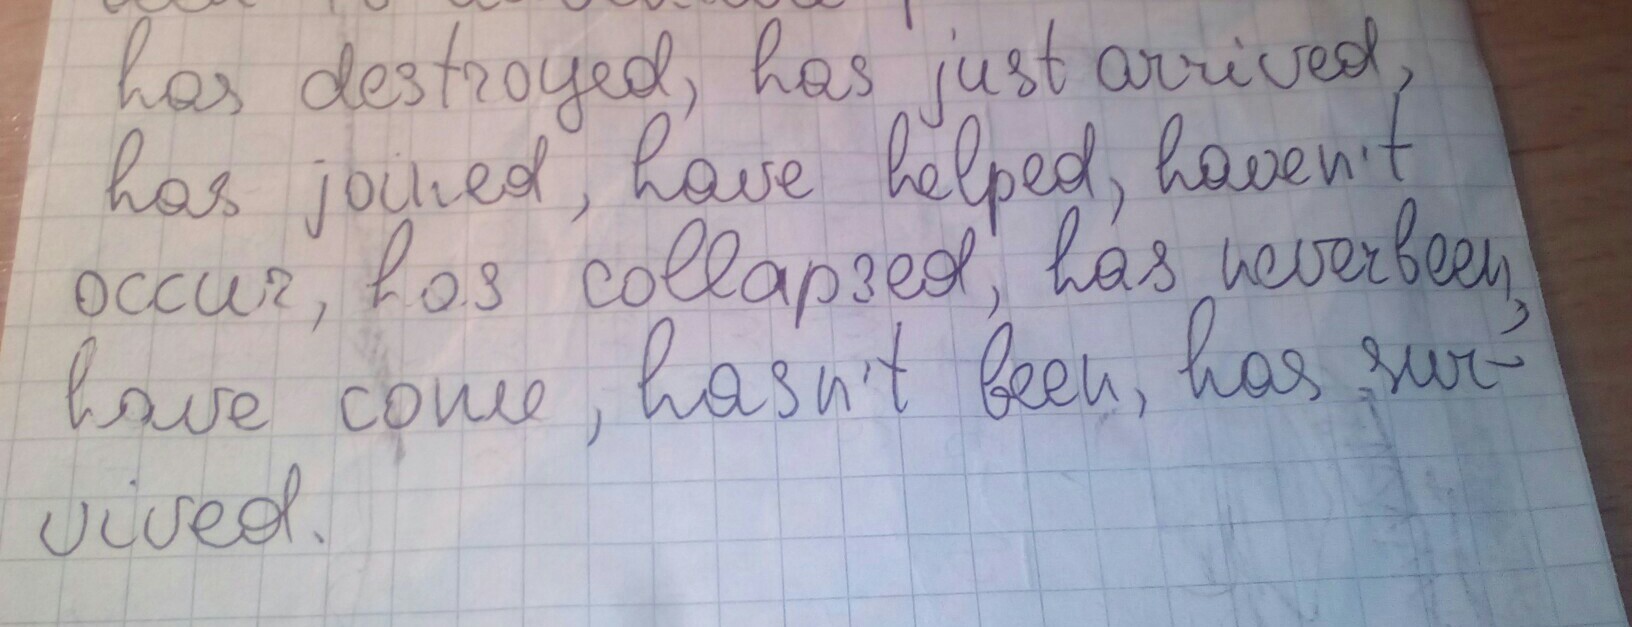 has destroyed, has just arrived,
has joined, have helped, haven't
occur, has collapsed, has never been,
have come, hasn't been, has sur-
vived.